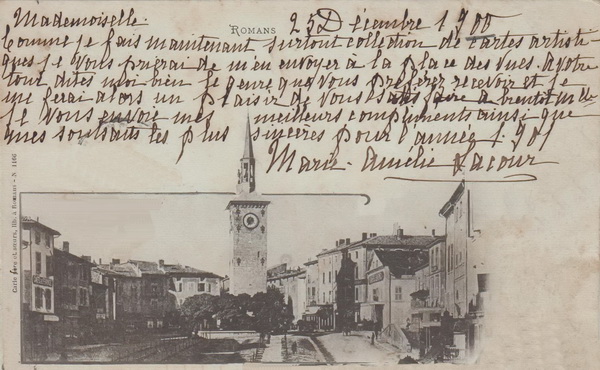 Mademoiselle. ROMANS 25 Décembre 1900
Comme je fais maintenant surtout collection de cartes artisti-
ques je vous prierai de m'en envoyer à la place des vues. A votre
tour dites moi bien le genre que vous préférez recevoir et je
me ferai alors un plaisir de vous faire à bientôt
Je vous envoie mes meilleurs compliments ainsi que
mes souhaits les plus sincères pour l'année 1901
Marie-Amélie Lacour
Romans - N. 1186